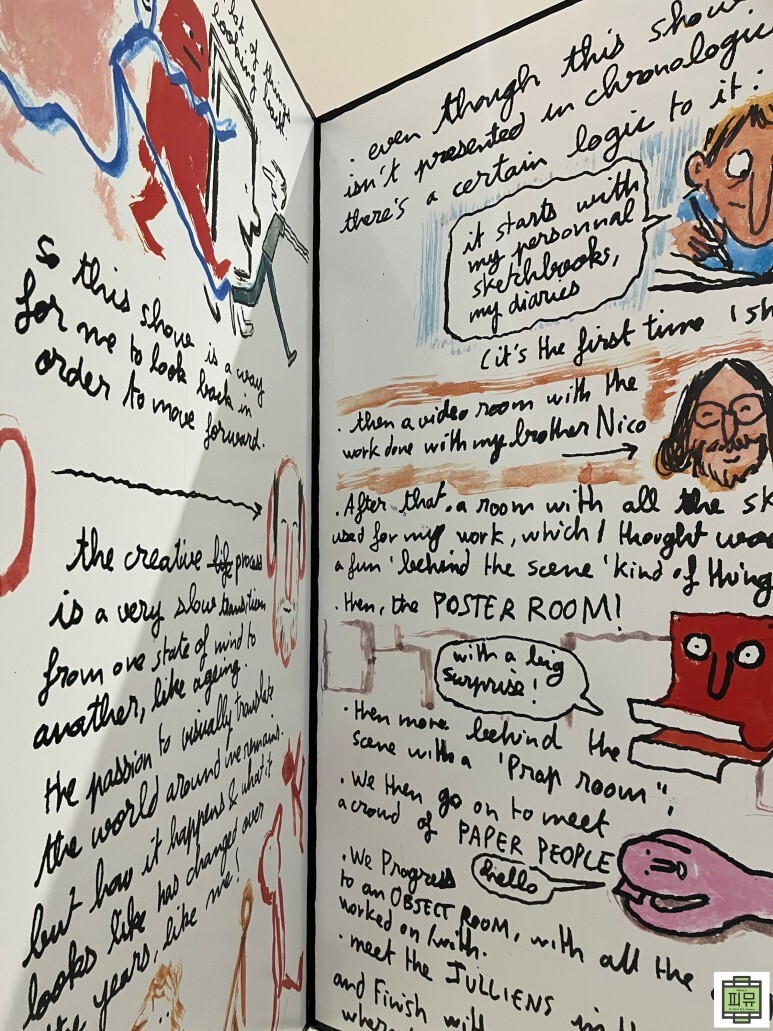 lot of things
looking back
So this show is a way
for me to look back in
order to move forward.
the creative life process
is a very slow transition
from one state of mind to
another, like ageing.
the passion to visually translate
the world around me remains.
but how it happens & what it
looks like has changed over
the years, like me!
. even though this show
isn't presented in chronologic
there's a certain logic to it:
it starts with
my personnal
sketchbooks,
my diaries
(it's the first time I sh
. then a video room with the
work done with my brother Nico
. After that. a room with all the sk
used for my work, which I thought wou
a fun 'behind the scene' kind of thing
. then, the POSTER ROOM!
with a big
surprise!
. then more behind the
scene with a 'Prop room",
. We then go on to meet
a crowd of PAPER PEOPLE
hello
. We Progress
to an OBJECT ROOM, with all the
worked on/with.
. meet the JULLIENS in th
and finish with
where
피뮤